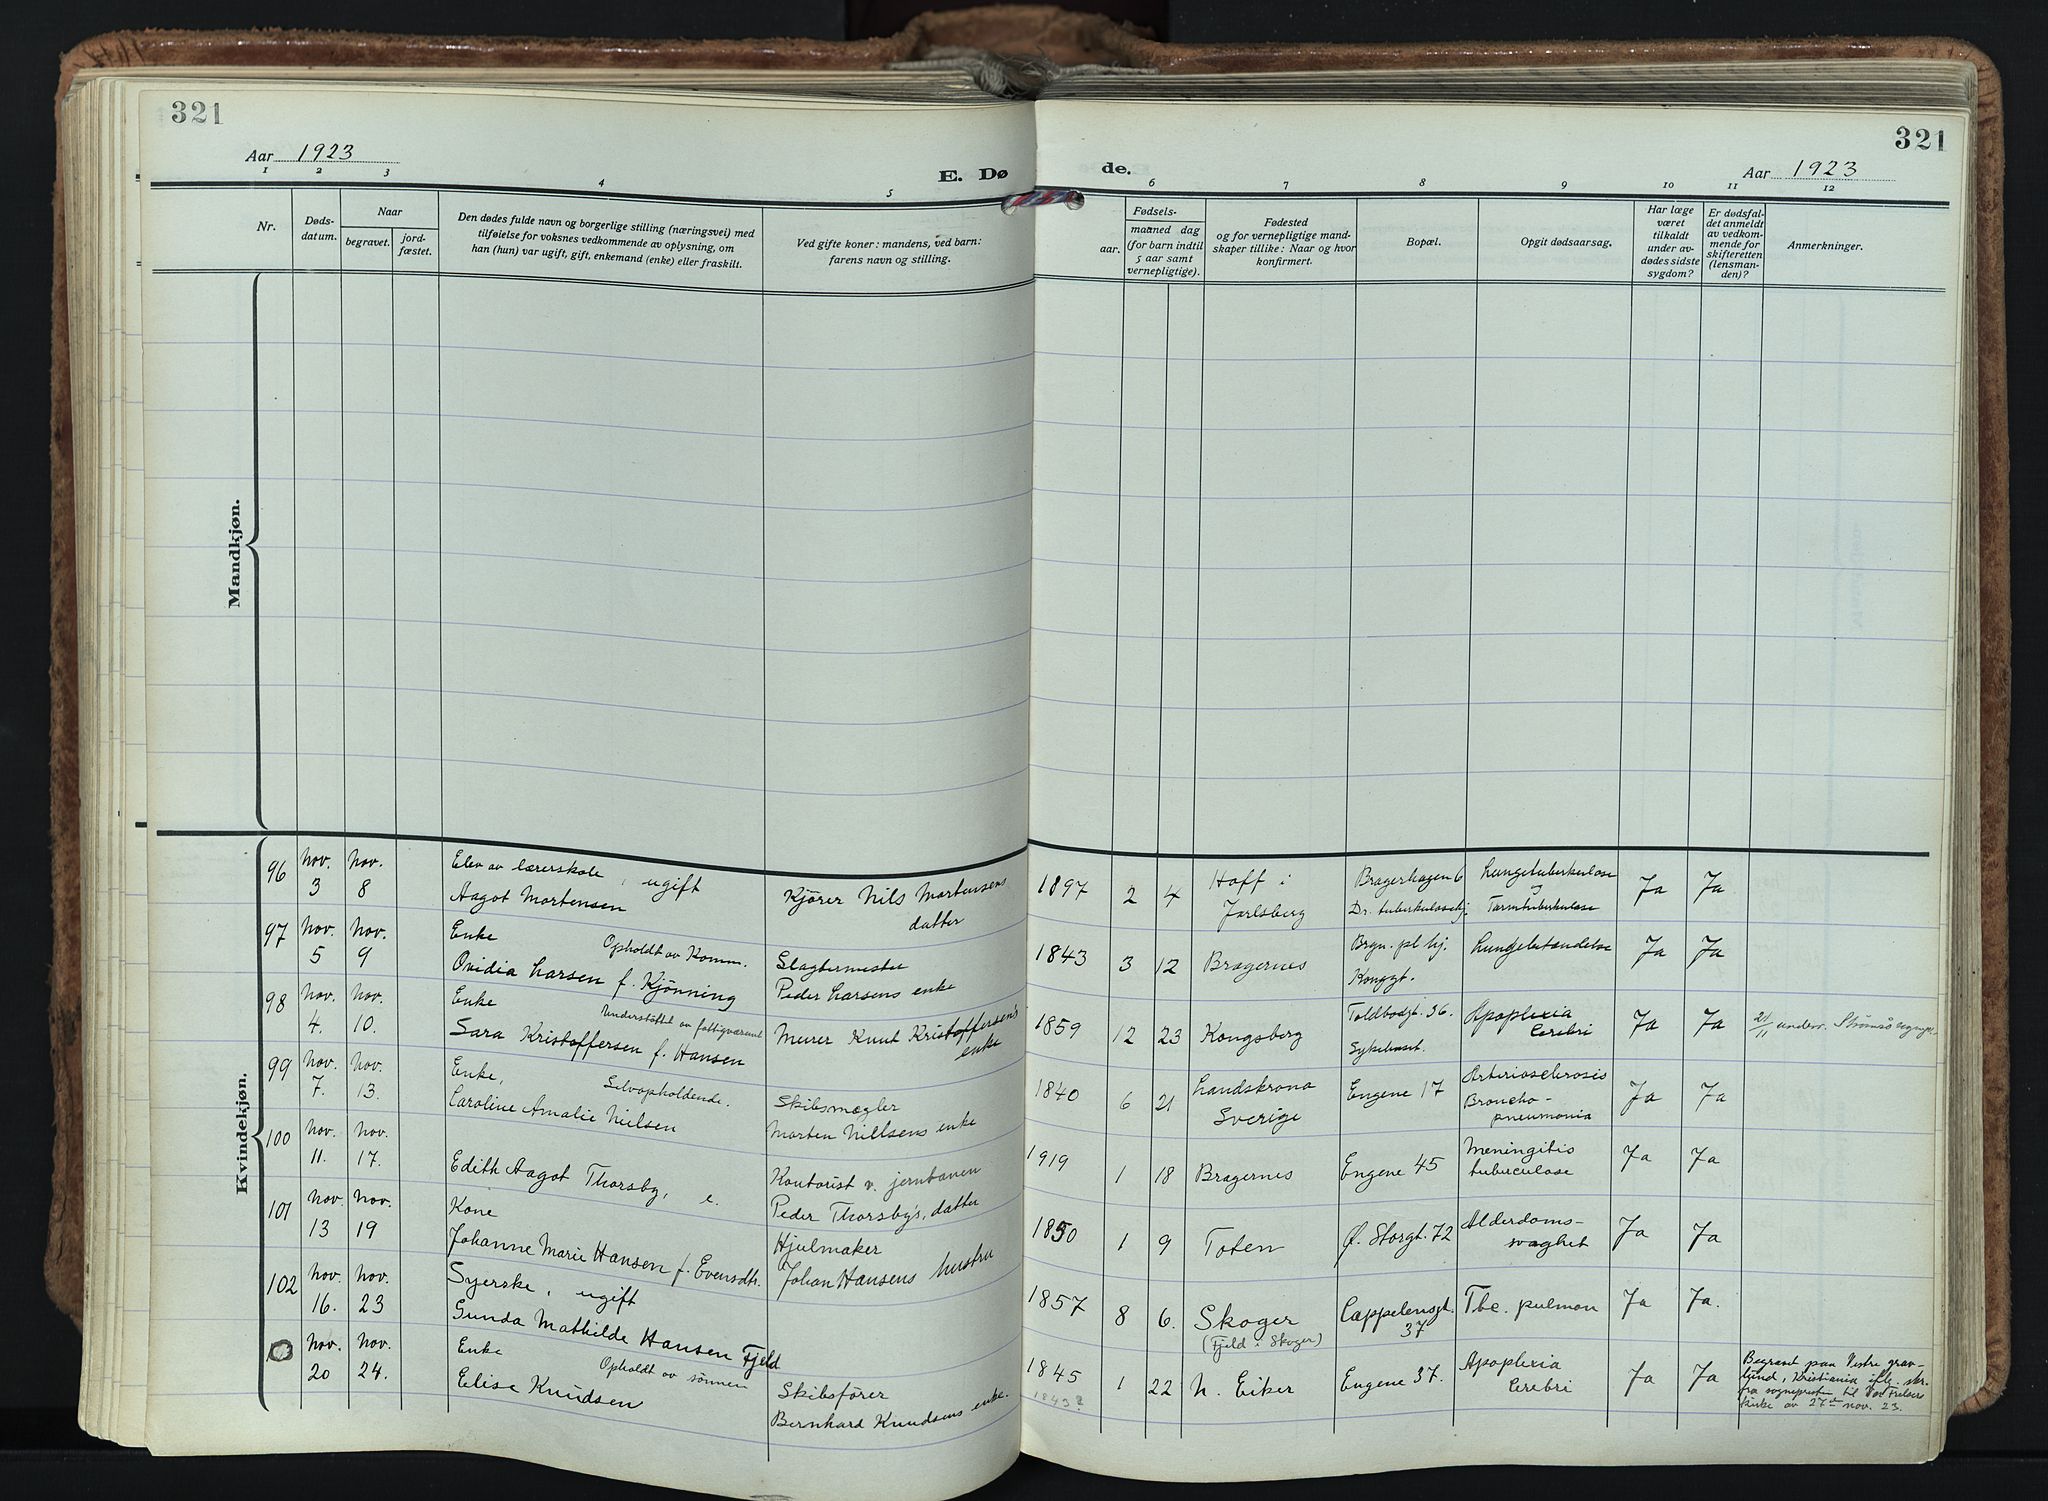 321
321
Aar 1923
E. Dø
de.
Aar 1923
1 2 3 4 5 6 7 8 9 10 11 12
Nr.
Døds-
datum.
Naar
begravet.
jord-
fæstet.
Den dødes fulde navn og borgerlige stilling (næringsvei) med
tilføielse for voksnes vedkommende av oplysning, om
han (hun) var ugift, gift, enkemand (enke) eller fraskilt.
Ved gifte koner: mandens, ved barn:
farens navn og stilling.
Fødsels-
aar.
maaned dag
(for barn indtil
5 aar samt
vernepligtige).
Fødested
og for vernepligtige mand-
skaper tillike: Naar og hvor
konfirmert.
Bopæl.
Opgit dødsaarsag.
Har læge
været
tilkaldt
under av-
dødes sidste
sygdom?
Er dødsfal-
det anmeldt
av vedkom-
mende for
skifteretten
(lensman-
den)?
Anmerkninger.
Mandkjøn.
Kvindekjøn.
96
Nov.
3
Nov.
8
Elev av lærerskole, ugift
Aagot Mortensen
Kjører Nils Mortensens
datter
1897
2
4
Hoff i
Jarlsberg
Bragerhagen 6
Dr. tuberkulosehj.
Lungetuberkulose
og
Tarmtuberkulose
Ja
Ja
97
Nov.
5
Nov.
9
Enke
Opholdt av Komm.
Ovidia Larsen f. Kjönning
Slagtermester
Peder Larsens enke
1843
3
12
Bragernes
Brgn. pl hj.
Kongsgt.
Lungebetændelse
Ja
Ja
98
Nov.
4.
Nov.
10.
Enke
Understöttet av fattigvæsenet
Sara Kristoffersen f. Hansen
Murer Knut Kristoffersen's
enke
1859
12
23
Kongsberg
Toldbodgt. 36.
Sykehuset.
Apoplexia
Cerebri
Ja
Ja
21/11 underr. Strømsø sognepr.
99
Nov.
7.
Nov.
13.
Enke,
Selvopholdende.
Caroline Amalie Nielsen
Skibsmægler
Morten Nillsens enke
1840
6
21
Landskrona
Sverige
Engene 17
Arteriosclerosis
Broncho-
pneumonia
Ja
Ja
100
Nov.
11.
Nov.
17.
Edith Aagot Thorsby, e.
Kontorist v. jernbanen
Peder Thorsby's, datter
1919
1
18
Bragernes
Engene 45
Meningitis
tuberculose
Ja
Ja
101
Nov.
13
Nov.
19
Kone
Johanne Marie Hansen f. Evensdtr.
Hjulmaker
Johan Hansens hustru
1850
1
9
Toten
Ø. Storgt. 72
Alderdoms-
svaghet
Ja
Ja
102
Nov.
16.
Nov.
23
Syerske, ugift
Gunda Mathilde Hansen Fjeld
1857
8
6.
Skoger
(Fjeld i Skoger)
Cappelensgt.
37
Tbc. pulmon
Ja
Ja.
Nov.
20
Nov.
24.
Enke
Opholdt av sönnen
Elise Knudsen
Skibsförer
Bernhard Knudsens enke.
1845
1843?
1
22
N. Eiker
Engene 37.
Apoplexia
Cerebri
Ja
Ja
Begravet paa Vestre grav-
lund, Kristiania iflg. skr.
fra sognepresten til Vor Frelsers
kirke av 27de nov. 23.